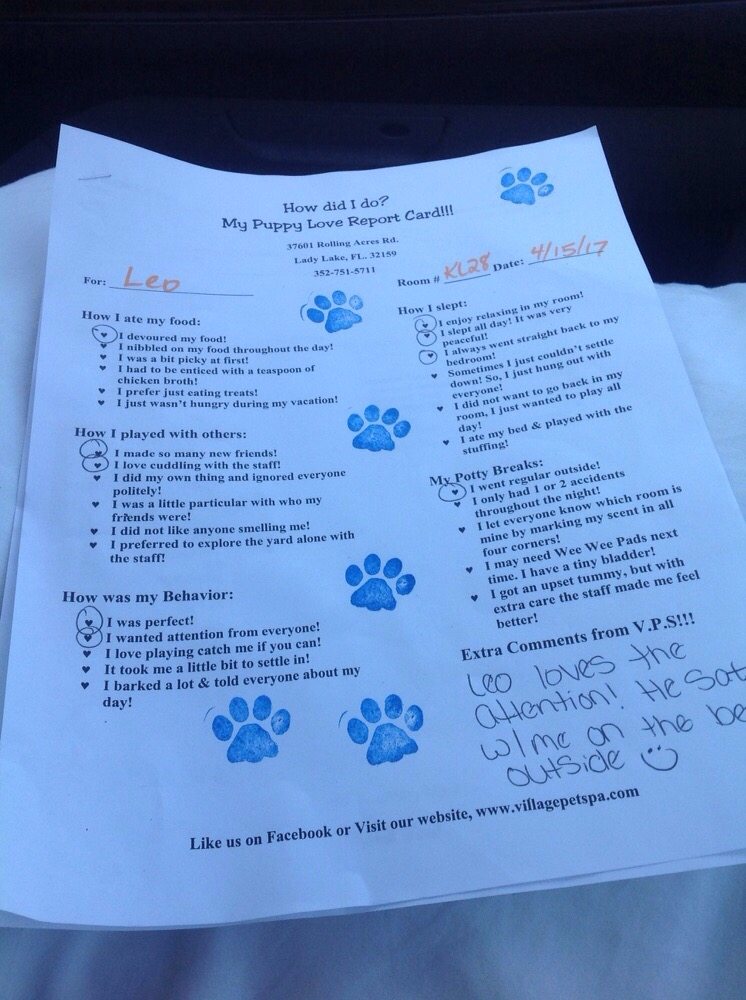 How did I do?
My Puppy Love Report Card!!!
37601 Rolling Acres Rd.
Lady Lake, FL. 32159
352-751-5711
For: Leo
Room # KL28 Date: 4/15/17
How I ate my food:
I devoured my food!
I nibbled on my food throughout the day!
I was a bit picky at first!
I had to be enticed with a teaspoon of
chicken broth!
I prefer just eating treats!
I just wasn't hungry during my vacation!
How I played with others:
I made so many new friends!
I love cuddling with the staff!
I did my own thing and ignored everyone
politely!
I was a little particular with who my
friends were!
I did not like anyone smelling me!
I preferred to explore the yard alone with
the staff!
How was my Behavior:
I was perfect!
I wanted attention from everyone!
I love playing catch me if you can!
It took me a little bit to settle in!
I barked a lot & told everyone about my
day!
How I slept:
I enjoy relaxing in my room!
I slept all day! It was very
peaceful!
I always went straight back to my
bedroom!
Sometimes I just couldn't settle
down! So, I just hung out with
everyone!
I did not want to go back in my
room, I just wanted to play all
day!
I ate my bed & played with the
stuffing!
My Potty Breaks:
I went regular outside!
I only had 1 or 2 accidents
throughout the night!
I let everyone know which room is
mine by marking my scent in all
four corners!
I may need Wee Wee Pads next
time. I have a tiny bladder!
I got an upset tummy, but with
extra care the staff made me feel
better!
Extra Comments from V.P.S!!!
Leo loves the
attention! He sat
w/me on the be
outside
Like us on Facebook or Visit our website, www.villagepetspa.com